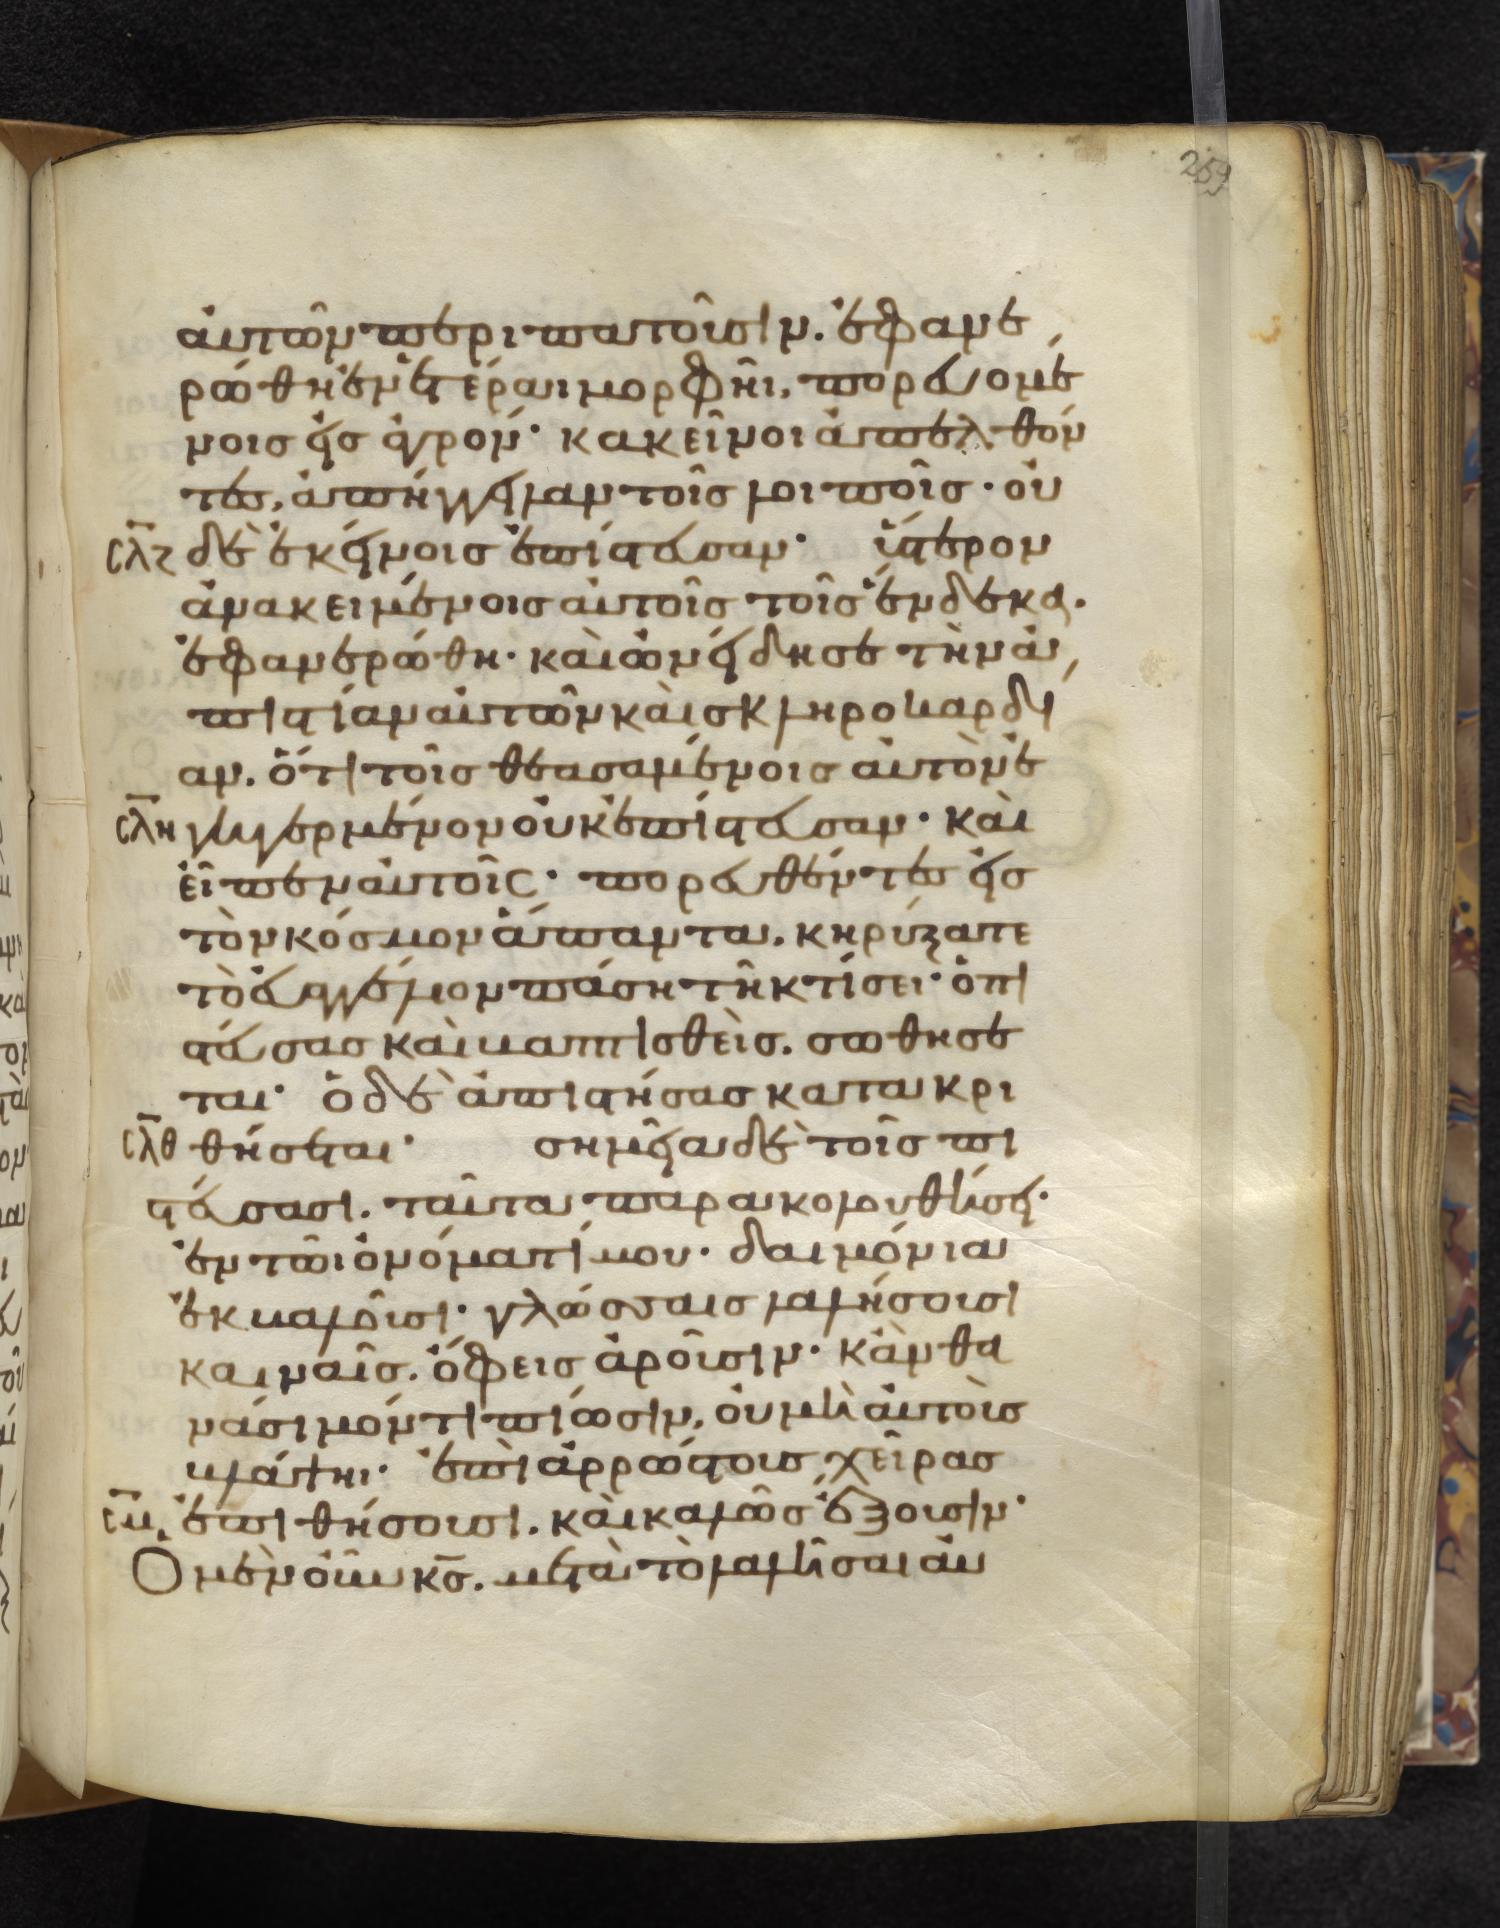 259
αὐτῶν περιπατοῦσιν. ἐφανε
ρώθη ἐν ἑτέραι μορφῆι, πορευομέ
νοις εἰς ἀγρόν· κἀκεῖνοι ἀπελθόν
τες, ἀπήγγειλαν τοῖς λοιποῖς· οὐ
σλζ δὲ ἐκείνοις ἐπίστευσαν· ὕστερον
ἀνακειμένοις αὐτοῖς τοῖς ἕνδεκα.
ἐφανερώθη· καὶ ὠνείδησε τὴν ἀ
πιστίαν αὐτῶν καὶ σκληροκαρδί
αν. ὅτι τοῖς θεασαμένοις αὐτὸν ἐ
σλη γηγερμένον οὐκ ἐπίστευσαν· καὶ
εἶπεν αὐτοῖς· πορευθέντες εἰς
τὸν κόσμον ἅπαντα. κηρύξατε
τὸ εὐαγγέλιον πάση τῆ κτίσει· ὁ πι
στεύσας καὶ βαπτισθεὶς. σωθήσε
ται· ὁ δὲ ἀπιστήσας κατακρι
σλθ θήσεται· σημεῖα δὲ τοῖς πι
στεύσασι. ταῦτα παρακολουθήσει·
ἐν τῶι ὀνόματί μου· δαιμόνια
ἐκβαλοῦσι· γλώσσαις λαλήσουσι
καιναῖς. ὄφεις ἀροῦσιν· κἂν θα
νάσιμόν τι πίωσιν, οὐ μὴ αὐτοὺς
βλάψηι· ἐπὶ ἀρρώστους χεῖρας
σμ ἐπιθήσουσι. καὶ καλῶς ἕξουσιν·
Ὁ μὲν οὖν κς. μετὰ τὸ λαλῆσαι αὐ